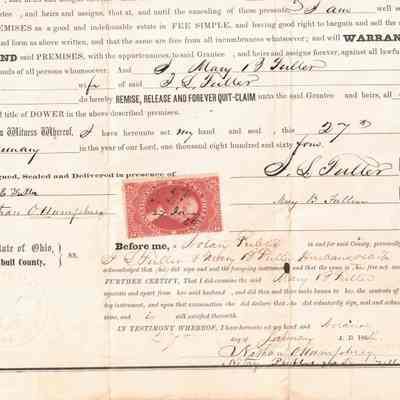 , and heirs and assigns, that at, and until the ensealing of these presents I am well se
EMISES as a good and indefeasible estate in FEE SIMPLE, and leaving good right to bargain and sell the
and form as above written, and that the same are free from all incumbrances whatsoever; and will WARRAN
ND said PREMISES, with the appurtenances, to said Grantee , and heirs and assigns forever, against all lawfu
nds of all persons whomsoever. And I, Mary B Fuller
wife of I. L. Fuller
do hereby REMISE, RELEASE AND FOREVER QUIT-CLAIM unto the said Grantee and heirs, all
d title of DOWER in the above described premises.
n Witness Whereof, I have hereunto set my hand and seal , this 27th
nuary in the year of our Lord, one thousand eight hundred and sixty four.
gned, Sealed and Delivered in presence of
I. L. Fuller
Mary B. Fuller
than O Humphrey
tate of Ohio,
bull County, ss.
Before me, a Notary Public in and for said County, personally
I L Fuller & Mary B Fuller
acknowledged that they did sign and seal the foregoing instrument, and that the same is free act and
FURTHER CERTIFY, That I did examine the said Mary B Fuller
separate and apart from her said husband , and did then and there make known to her the contents of
ing instrument, and upon that examination she did declare that she did voluntarily sign, seal and acknow
ame, and is still satisfied therewith.
IN TESTIMONY WHEREOF, I have hereunto set my hand and
January A. D. 186
Nathan O Humphrey
Notary Public